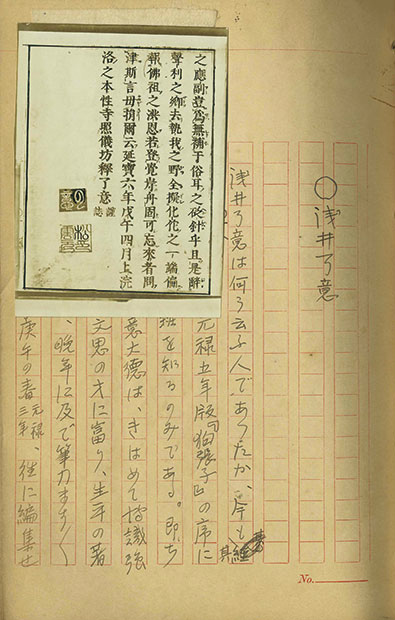 ○浅井了意
浅井了意は何う云ふ人であつたか、今も
其
元禄五年版『狗張子』の序に
班を知るのみである。即ち
意大徳は、きはめて博識強
文思の才に富り、生平の著
、晩年に及で筆力ます〱
庚午の春元禄三年、徃に編集せ
之應副豈爲無補于俗耳之砭針乎且是辭
聲利之鄉去執我之野全擬化他之一端偏
報佛祖之洪恩若登覺岸舟可忘來者問
津斯言毋損爾云延寶六年戊午四月上浣
洛之本性寺昭儀坊釋了意謹誌
No.